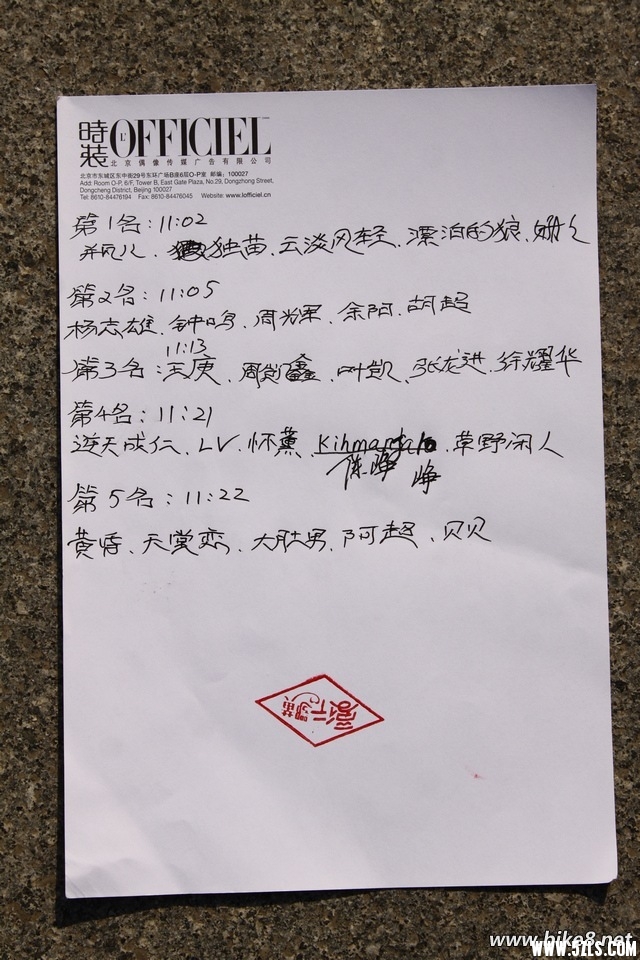 時装 L'OFFICIEL
北京偶像传媒广告有限公司
北京市东城区东中街29号东环广场B座6层O-P室 邮编：100027
Add: Room O-P, 6/F, Tower B, East Gate Plaza, No.29, Dongzhong Street,
Dongcheng District, Beijing 100027
Tel: 8610-84476194 Fax: 8610-84476045 Website: www.lofficiel.cn
第1名：11:02
独苗、云淡风轻、漂泊的狼、
第2名：11:05
杨志雄、钟鸣、周光军、余阿、胡超
11:13
第3名：王庚、鑫、叶凯、张龙进、徐耀华
第4名：11:21
逆天成仁、LV、怀薰、草野闲人
陈峥 峥
第5名：11:22
黄昏、天堂恋、大肚男、阿超、贝贝
www.bike8.net
WWW.52LS.COM